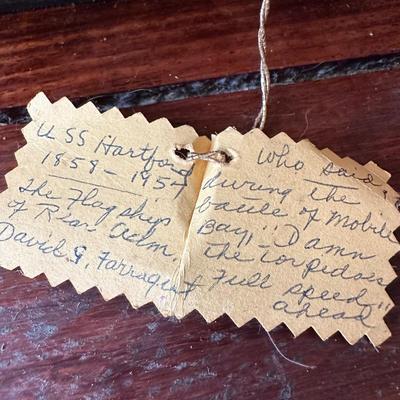 USS Hartford
1859 - 1957
The Flagship
of Rear Adm.
David G. Farragut
Who said,
during the
battle of Mobile
Bay, "Damn
the torpedoes
Full speed
ahead"